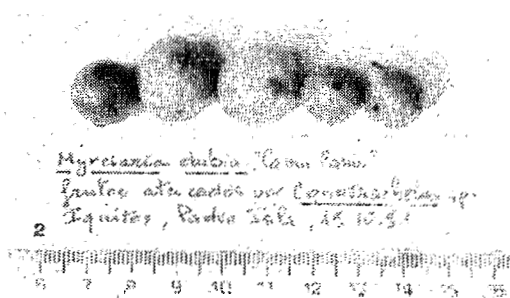 Myrciaria dubia "Camu Camu"
frutos atacados por Conotrachelus sp.
Iquitos, Padre Isla,
2
6 7 8 9 10 11 12 13 14 15